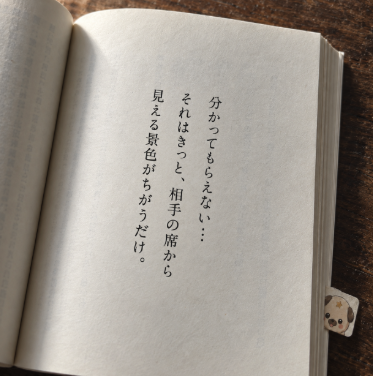 分かってもらえない…
それはきっと、相手の席から
見える景色がちがうだけ。